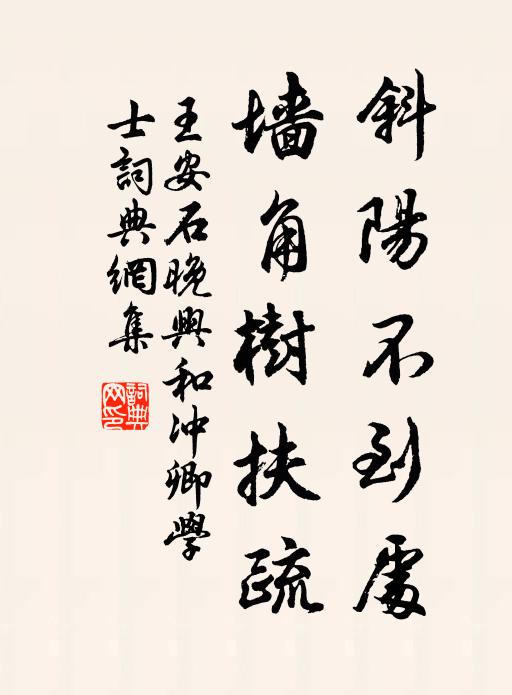 斜陽不到處
墙角樹扶疏
王安石晚興和沖卿學
士詞典網集
詞典
网印